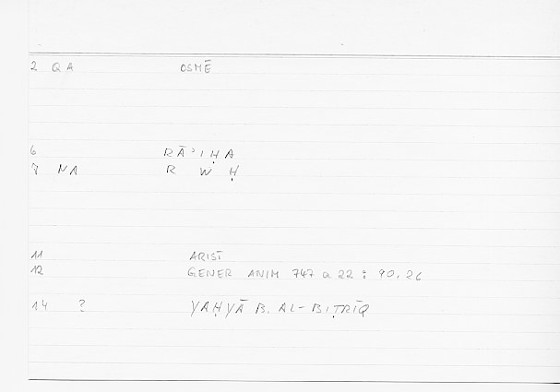 2 QA OSMĒ
6 RĀʾIḤA
7 NA R W Ḥ
11 ARIST
12 GENER ANIM 747 a 22 : 90.26
14 ? YAḤYĀ B. AL-BIṬRĪQ